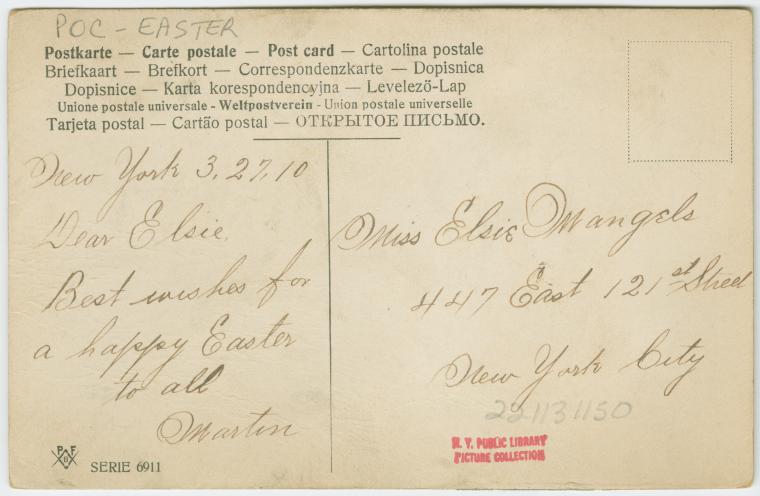 POC - EASTER
Postkarte — Carte postale — Post card — Cartolina postale
Briefkaart — Brefkort — Correspondenzkarte — Dopisnica
Dopisnice — Karta korespondencyjna — Levelező-Lap
Unione postale universale - Weltpostverein - Union postale universelle
Tarjeta postal — Cartão postal — ОТКРЫТОЕ ПИСЬМО.
New York 3,27,10
Dear Elsie.
Best wishes for
a happy Easter
to all
Martin
Miss Elsie Mangels
447 East 121st Street
New York City
221131150
N. Y. PUBLIC LIBRARY
PICTURE COLLECTION
P F B
SERIE 6911